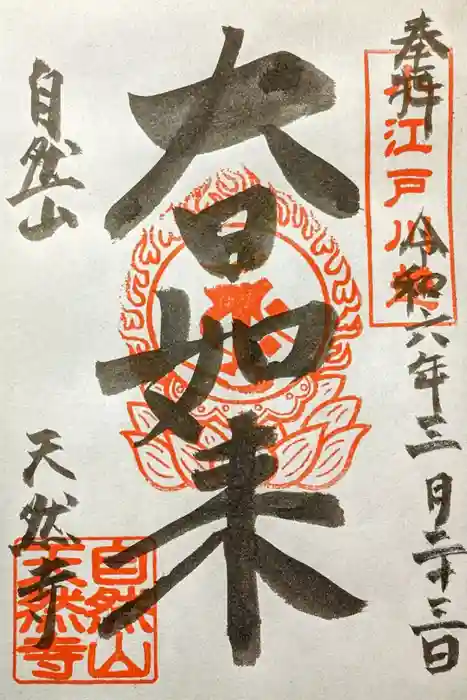 奉拝
江戸川区
令和六年三月二十三日
大日如来
自然山
天然寺
自然山
天然寺